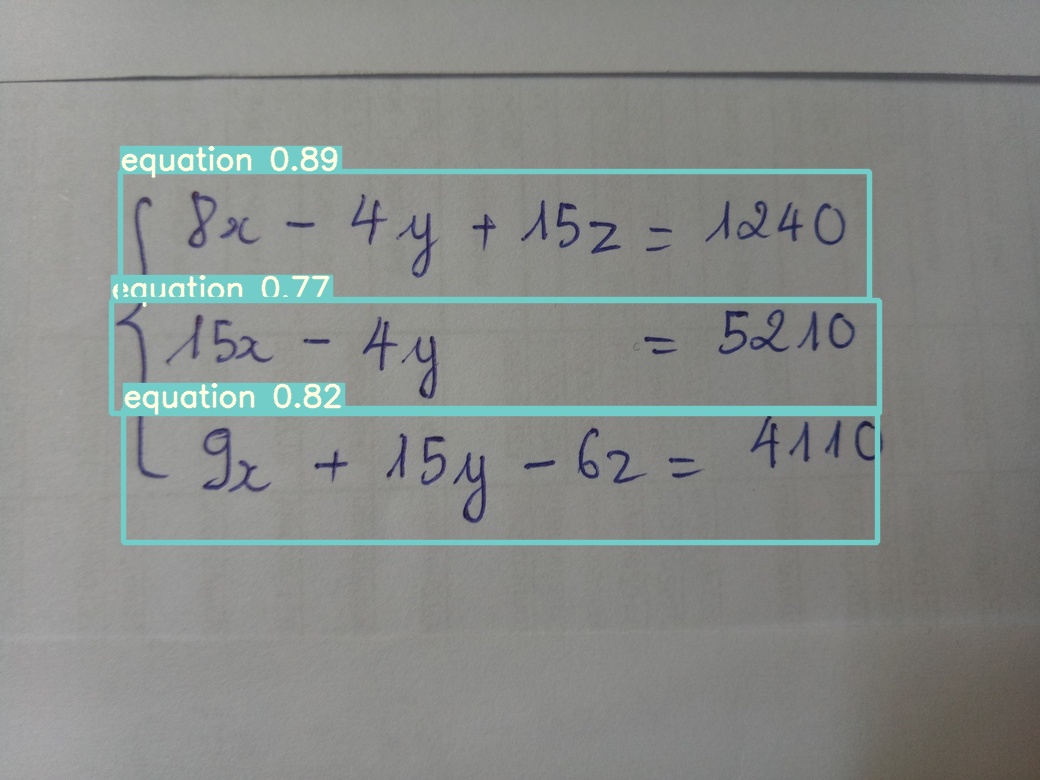 equation 0.89
8x - 4y + 15z = 1240
equation 0.77
15x - 4y = 5210
equation 0.82
9x + 15y - 6z = 4110